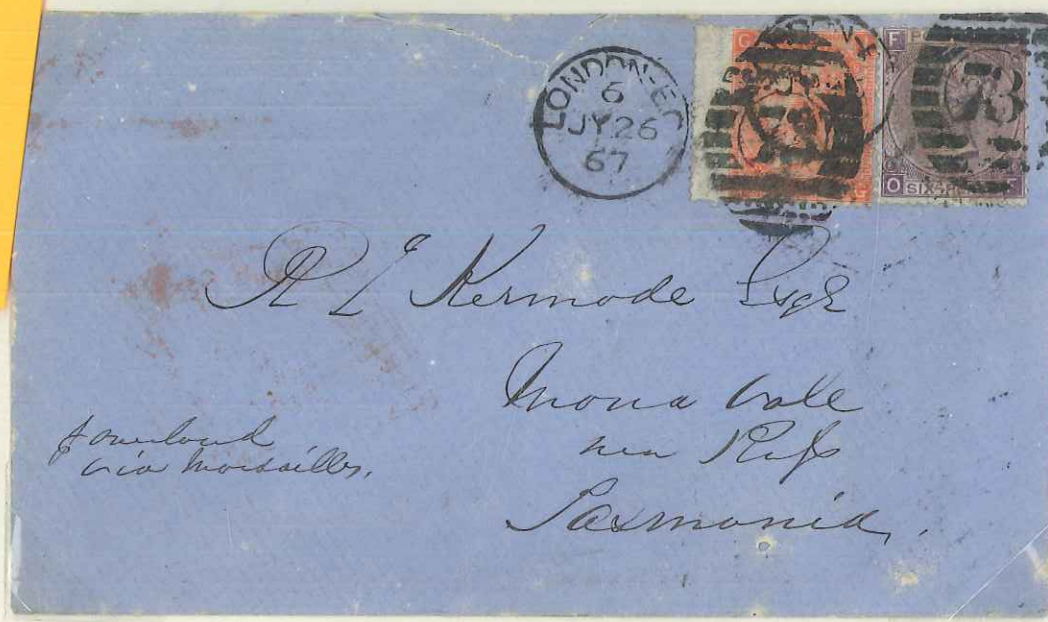 LONDON-EC
6
JY 26
67
F PO
O SIX F
G
R Q Kermode Esqr
Mona Vale
near Ross
Tasmania.
p overland
via Marseilles.